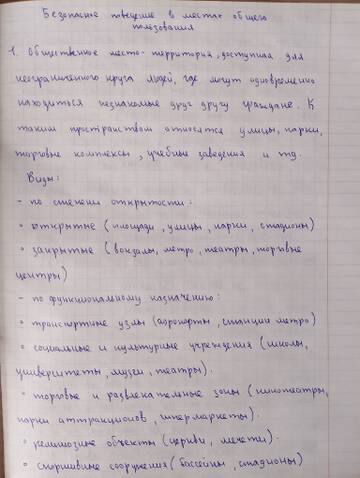 Безопасное поведение в местах общего
пользования
1. Общественное место - территория, доступная для
неограниченного круга людей, где могут одновременно
находиться незнакомые друг другу граждане. К
таким пространствам относятся улицы, парки,
торговые комплексы, учебные заведения и тд.
Виды:
- по степени открытости:
• открытые (площади, улицы, парки, стадионы)
• закрытые (вокзалы, метро, театры, торговые
центры)
- по функциональному назначению:
• транспортные узлы (аэропорты, станции метро)
• социальные и культурные учреждения (школы,
университеты, музеи, театры).
• торговые и развлекательные зоны (кинотеатры,
парки аттракционов, гипермаркеты).
• религиозные объекты (церкви, мечети).
• спортивные сооружения (бассейны, стадионы)